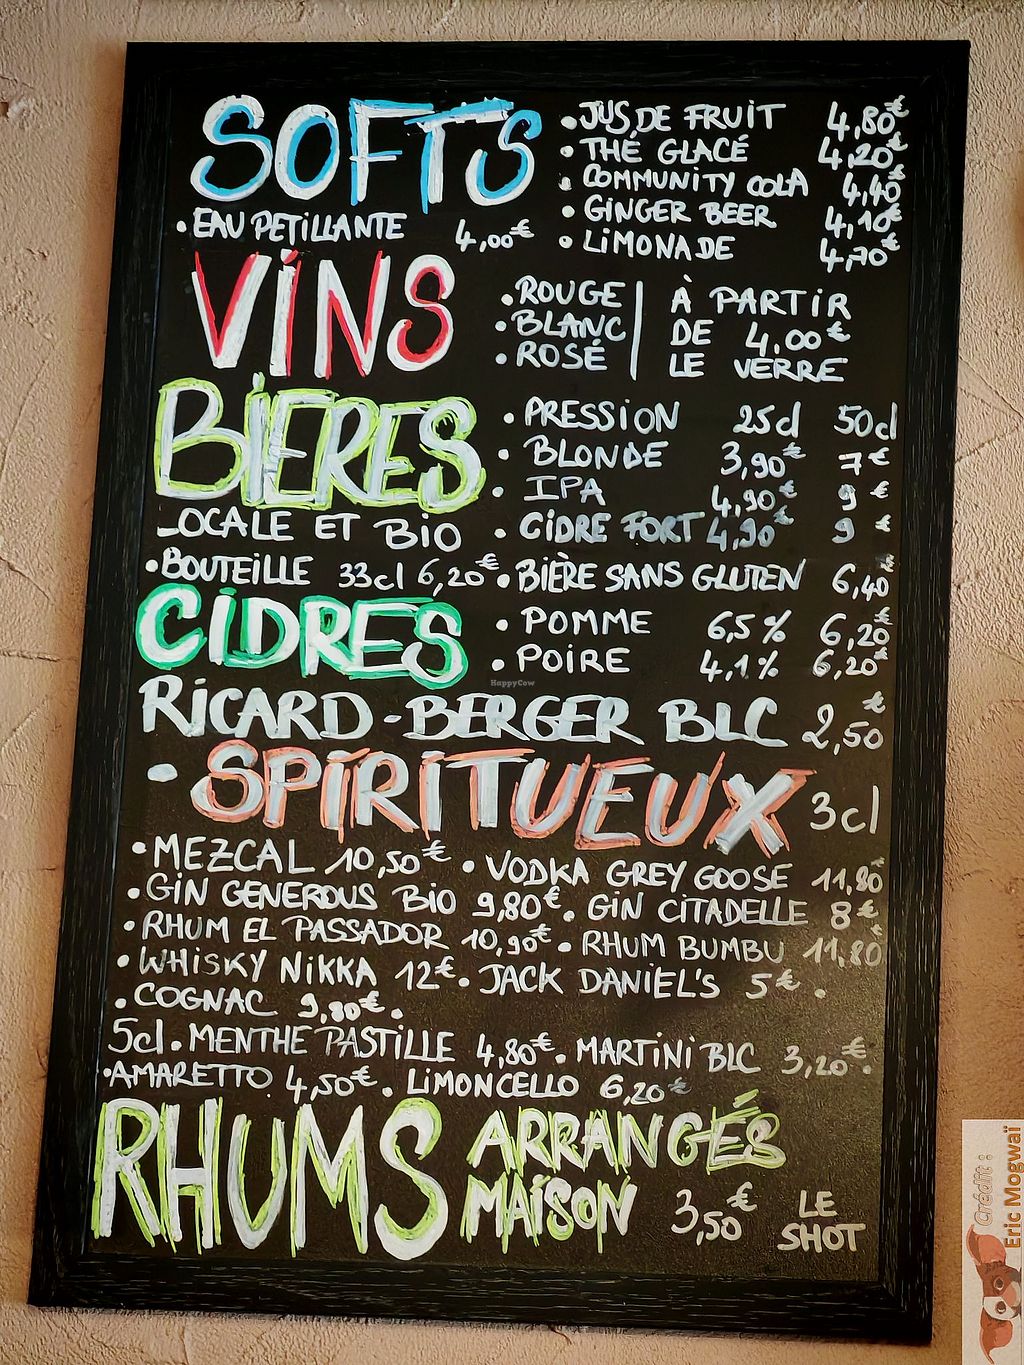 SOFTS
• EAU PETILLANTE 4,00€
• JUS DE FRUIT 4,80€
• THÉ GLACÉ 4,20€
• COMMUNITY COLA 4,40€
• GINGER BEER 4,10€
• LIMONADE 4,70€
VINS
• ROUGE
• BLANC
• ROSÉ
À PARTIR
DE 4,00€
LE VERRE
BIERES
LOCALE ET BIO
• PRESSION 25cl 50cl
• BLONDE 3,90€ 7€
• IPA 4,90€ 9 €
• CIDRE FORT 4,90€ 9 €
• BOUTEILLE 33cl 6,20€ • BIÈRE SANS GLUTEN 6,40€
CIDRES
• POMME 6,5% 6,20€
• POIRE 4,1% 6,20€
RICARD - BERGER BLC 2,50€
• SPIRITUEUX 3cl
• MEZCAL 10,50€ • VODKA GREY GOOSE 11,80€
• GIN GENEROUS BIO 9,80€ • GIN CITADELLE 8€
• RHUM EL PASSADOR 10,90€ • RHUM BUMBU 11,80€
• WHISKY NIKKA 12€ • JACK DANIEL'S 5€ •
• COGNAC 9,80€ •
5cl • MENTHE PASTILLE 4,80€ • MARTINI BLC 3,20€ •
• AMARETTO 4,50€ • LIMONCELLO 6,20€
RHUMS ARRANGÉS
MAISON 3,50€ LE
SHOT
HappyCow
Crédit :
Eric Mogwaï